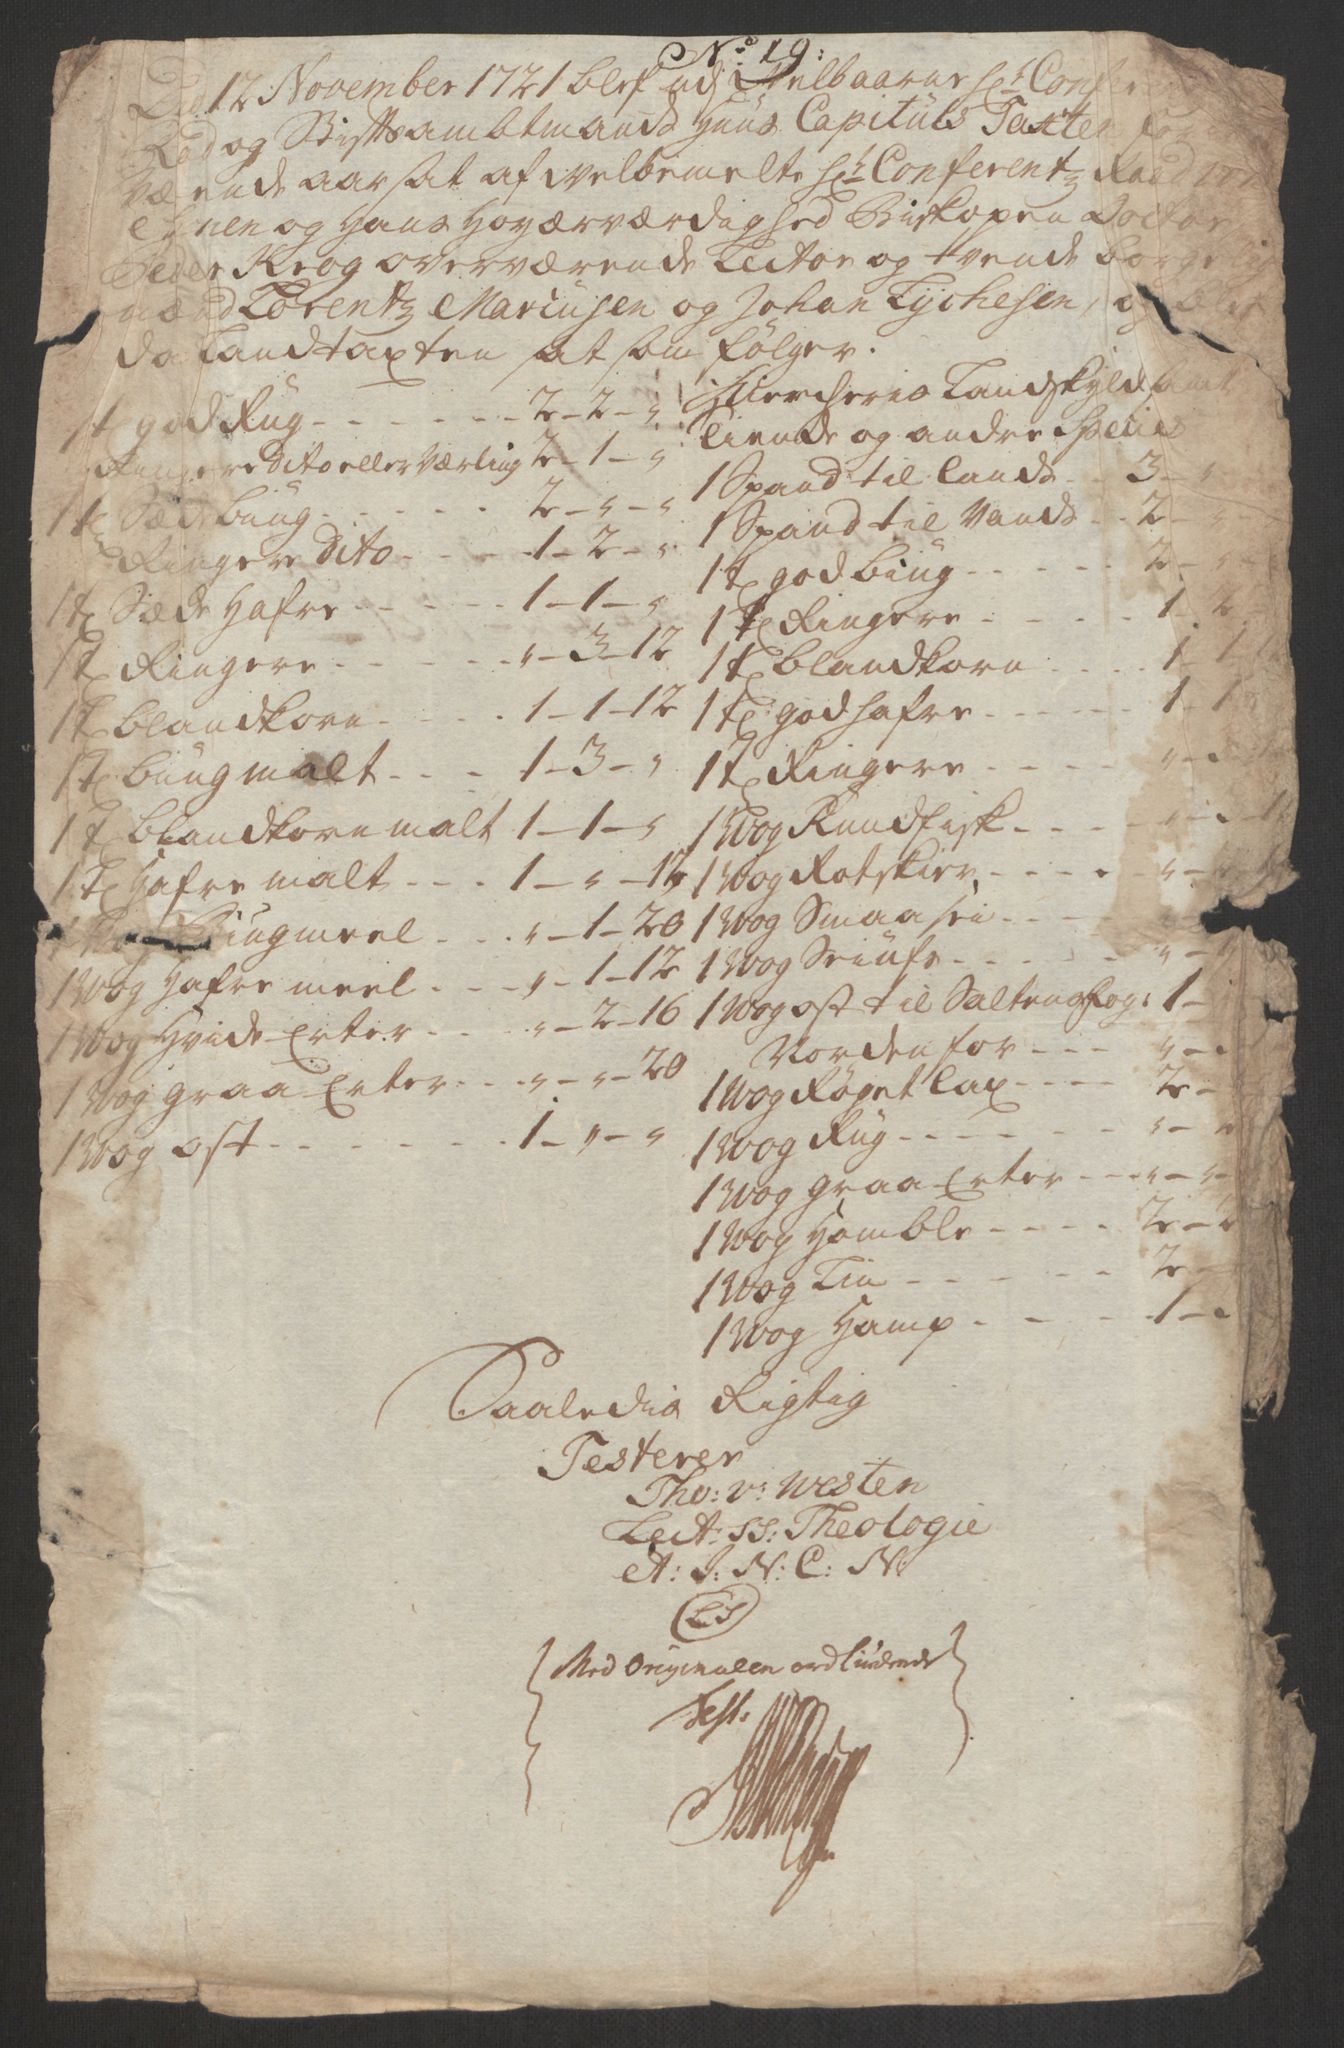 No 19:
Dend 12 November 1721 blef udj Velbaarne Hr Confere
Raad og Stiftsambtmands Huus Capituls Taxten for
værende aar sat af velbemelte Hr Conferentz Raad von
Ahnen og Hans Høyærværdighed Biskopen Doctor
Peder Krog overværende Lector og tvende borger
mænd Lorentz Mariusen og Johan Tychesen, og blef
da Landtaxten sat som følger.
1 t god Rug - - - - - - 2 - 2 - "
Ringere dito eller Værling 2 - 1 - "
1 t Sæde biug - - - - - 2 - " - "
Ringere dito - - - - 1 - 2 - "
1 t Sæde Hafre - - - - - 1 - 1 - "
1 t Ringere - - - - - " - 3 - 12
1 t blandkorn - - - - 1 - 1 - 12
1 t biug malt - - - - 1 - 3 - "
1 t blandkorn malt 1 - 1 - "
1 t Hafre malt - - - 1 - " - 12
biugmeel - - - " - 1 - 20
1 Wog Hafre meel - - - " - 1 - 12
1 Wog Hvide Erter - - - - " - 2 - 16
1 Wog graa Erter - - - " - " - 20
1 Wog ost - - - - - - - 1 - " - "
Landskyld
tiende og andre Species
1 Spand til lands - - 3 -
1 Spand til Vands - - 2 -
1 t god biug - - - - - 2 -
1 t Ringere - - - - - 1 - 2
1 t blandkorn - - - - 1 - 1
1 t god hafre - - - - - 1 - 1
1 t Ringere - - - - - "
1 Wog Rundfisk - - - -
1 Wog Rotskier - - - - - "
1 Wog Smaa sei - - -
1 Wog Seiufs - - - - - "
1 Wog ost til Saltens fog: 1 -
Norden for - - - "
1 Wog Røget lax - - - - 2 -
1 Wog Rug - - - - - - - "
1 Wog graa Erter - - - " - "
1 Wog Homble - - - - - 2 - 2
1 Wog Liin - - - - - - 2 -
1 Wog Hamp - - - - - 1 -
Saaledis Rigtig
Testerer
Tho: v: Westen
Lect: SS: Theologie
et: S: N: C: N:
LS
Med Originalen ordliudende
Test.